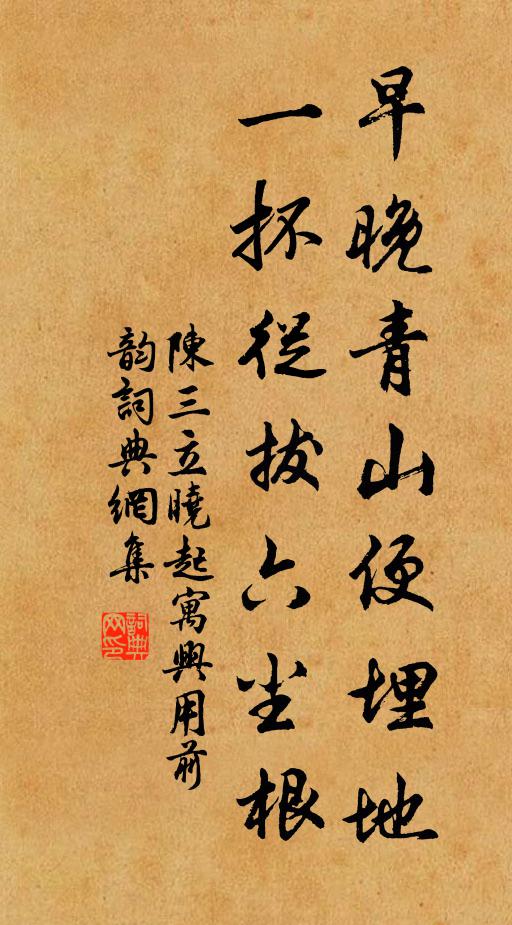 早晚青山便埋地
一抔從拔六尘根
陳三立曉起寓興用前
韵詞典網集
詞典
网印